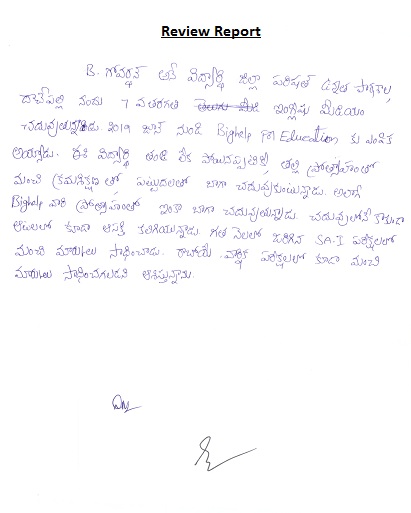 Review Report
B. గోవర్ధన్ అనే విద్యార్థి జిల్లా పరిషత్ ఉన్నత పాఠశాల,
దాచేపల్లి నందు 7 వ తరగతి తెలుగు మీడి ఇంగ్లీషు మీడియం
చదువుతున్నాడు 2019 జూన్ నుండి Bighelp For Education కు ఎంపిక
అయ్యాడు. ఈ విద్యార్థి తండ్రి లేక పోయినప్పటికీ తల్లి ప్రోత్సాహంతో
మంచి క్రమశిక్షణ తో పట్టుదలతో బాగా చదువుకుంటున్నాడు. అలాగే
Bighelp వారి ప్రోత్సాహంతో ఇంకా బాగా చదువుతున్నాడు. చదువులోనే కాకుండా
ఆటలలో కూడా ఆసక్తి కలిగియున్నాడు. గత నెలలో జరిగిన SA-I పరీక్షలలో
మంచి మార్కులు సాధించాడు. రాబోయే వార్షిక పరీక్షలలో కూడా మంచి
మార్కులు సాధించగలడని ఆశిస్తున్నాను.